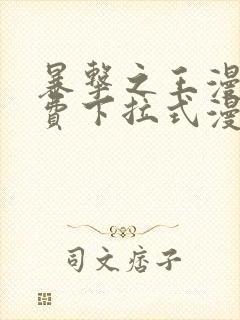 暴擊之王漫
費下拉式漫
司文痞子